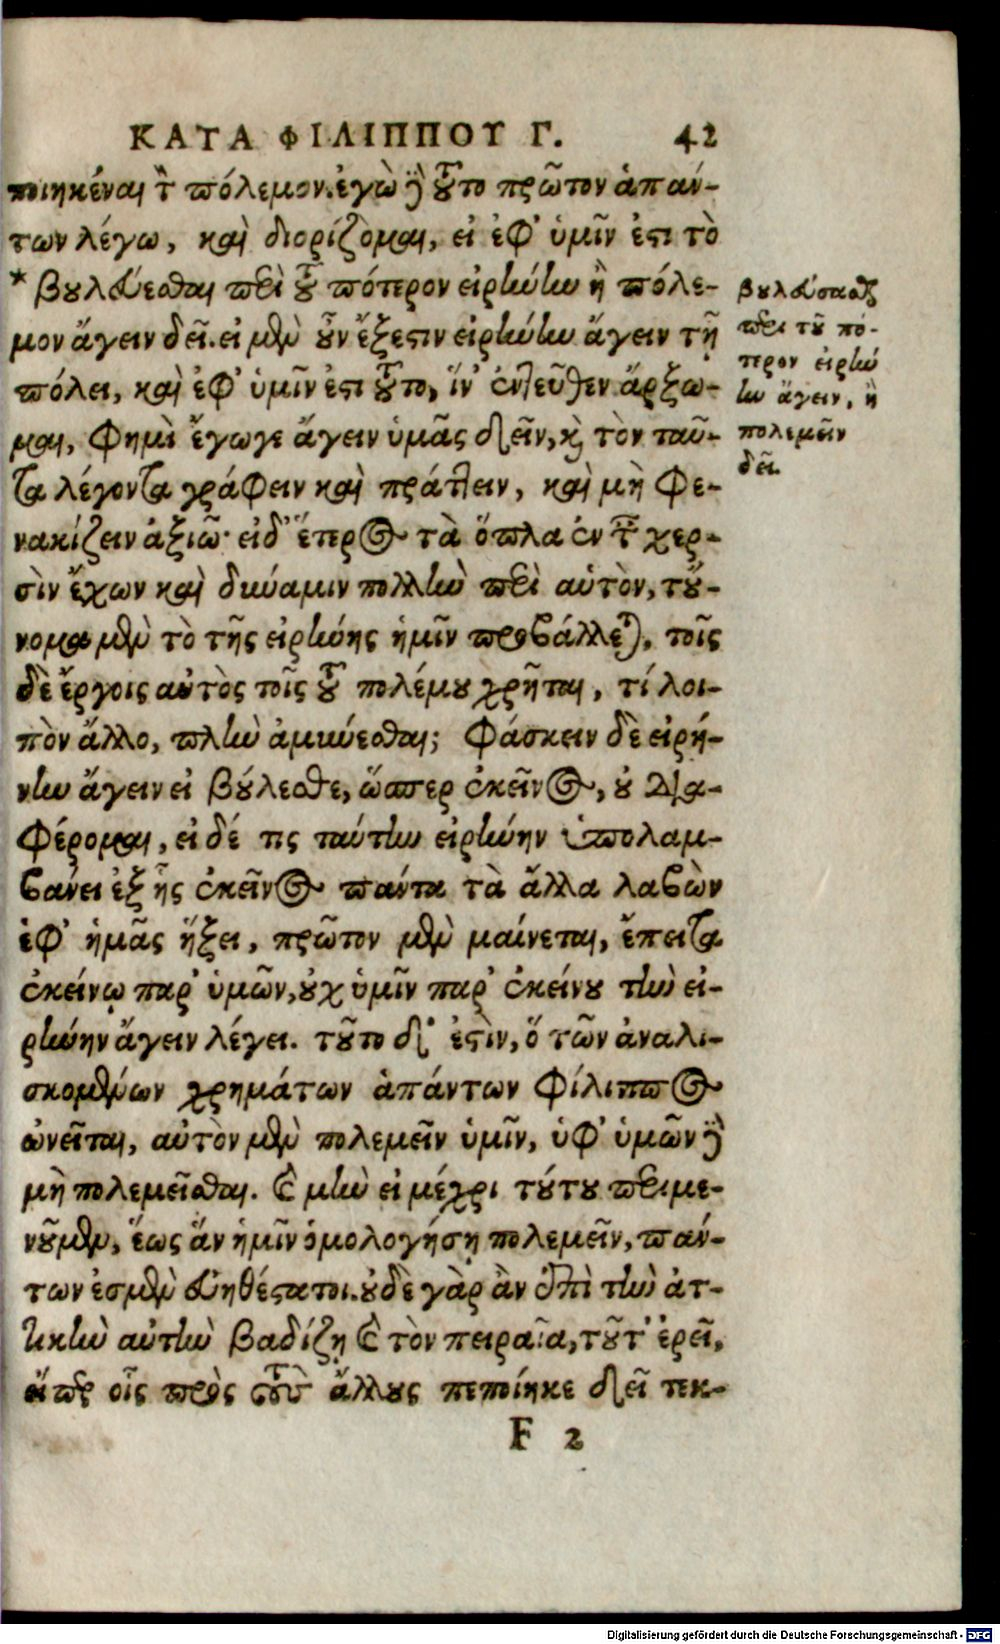 ΚΑΤΑ ΦΙΛΙΠΠΟΥ Γ. 42
ποιηκέναι τὸν πόλεμον. ἐγὼ δὲ τοῦτο πρῶτον ἁπάν-
των λέγω, καὶ διορίζομαι, εἰ ἐφ’ ὑμῖν ἐστι τὸ
* βουλεύεσθαι περὶ τοῦ πότερον εἰρήνην ἢ πόλε-
μον ἄγειν δεῖ. εἰ μὲν οὖν ἔξεστιν εἰρήνην ἄγειν τῇ
πόλει, καὶ ἐφ’ ὑμῖν ἐστι τοῦτο, ἵν’ ἐντεῦθεν ἄρξω-
μαι, φημὶ ἔγωγε ἄγειν ὑμᾶς δεῖν, καὶ τὸν ταῦ-
τα λέγοντα γράφειν καὶ πράττειν, καὶ μὴ φε-
νακίζειν ἀξιῶ· εἰ δ’ ἕτερος τὰ ὅπλα ἐν ταῖς χερ-
σὶν ἔχων καὶ δύναμιν πολλὴν περὶ αὑτὸν, τοὔ-
νομα μὲν τὸ τῆς εἰρήνης ἡμῖν προβάλλεται, τοῖς
δὲ ἔργοις αὐτὸς τοῖς τοῦ πολέμου χρῆται, τί λοι-
πὸν ἄλλο, πλὴν ἀμύνεσθαι; φάσκειν δὲ εἰρή-
νην ἄγειν εἰ βούλεσθε, ὥσπερ ἐκεῖνος, οὐ δια-
φέρομαι, εἰ δέ τις ταύτην εἰρήνην ὑπολαμ-
βάνει ἐξ ἧς ἐκεῖνος πάντα τὰ ἄλλα λαβὼν
ἐφ’ ἡμᾶς ἥξει, πρῶτον μὲν μαίνεται, ἔπειτα
ἐκείνῳ παρ’ ὑμῶν, οὐχ ὑμῖν παρ’ ἐκείνου τὴν εἰ-
ρήνην ἄγειν λέγει. τοῦτο δ’ ἐστὶν, ὅ τῶν ἀναλι-
σκομένων χρημάτων ἁπάντων Φίλιππος
ὠνεῖται, αὐτὸν μὲν πολεμεῖν ὑμῖν, ὑφ’ ὑμῶν δὲ
μὴ πολεμεῖσθαι. καὶ μὴν εἰ μέχρι τούτου περιμε-
νοῦμεν, ἕως ἂν ἡμῖν ὁμολογήσῃ πολεμεῖν, πάν-
των ἐσμὲν εὐηθέστατοι. οὐδὲ γὰρ ἂν ἐπὶ τὴν ἀτ-
τικὴν αὐτὴν βαδίζῃ καὶ τὸν πειραῖα, τοῦτ’ ἐρεῖ,
εἴπερ οἷς πρὸς τοὺς ἄλλους πεποίηκε δεῖ τεκ-
F 2
βουλεύσασθαι
περὶ τοῦ πό-
τερον εἰρήνην
ἄγειν, ἢ
πολεμεῖν
δεῖ.
Digitalisierung gefördert durch die Deutsche Forschungsgemeinschaft - DFG